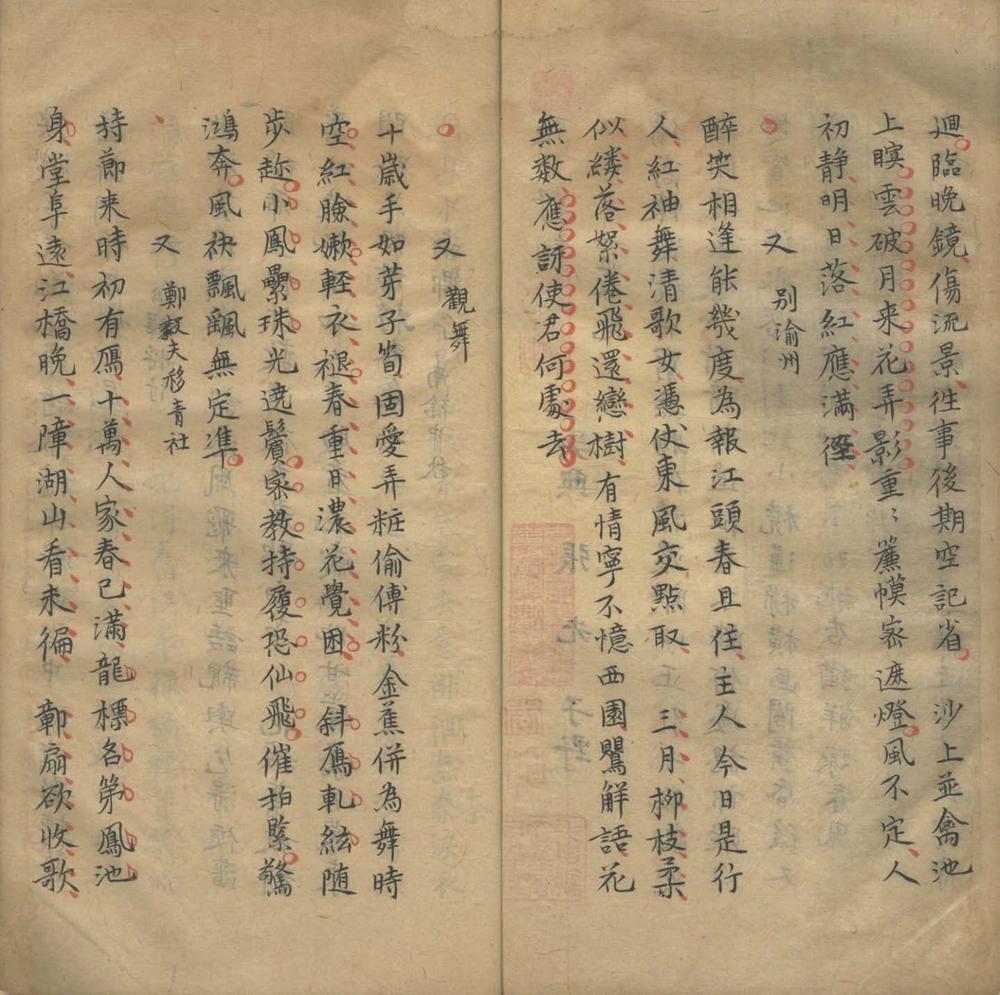 迴臨晚鏡傷流景徃事後期空記省沙上並禽池
上瞑雲破月来花弄影重〻簾幙宻遮燈風不定人
初静明日落紅應滿徑
又 别渝州
醉笑相逢能幾度為報江頭春且住主人今日是行
人紅袖舞清歌女憑仗東風交點取 三月柳枝柔
似縷落絮倦飛還戀樹有情寧不憶西園鸎觧語花
無數應訝使君何處去
又 觀舞
十歲手如芽子筍固愛弄粧偷傅粉金蕉併為舞時
空紅臉嫩軽衣褪春重日濃花覺困 斜鴈軋絃随
步趂小鳳纍珠光遶鬢宻教持履恐仙飛催拍緊驚
鴻奔風袂飄颻無定準
又 鄭毅夫移青社
持節来時初有鴈十萬人家春已滿龍標名第鳳池
身堂阜遠江橋晚一障湖山看未徧 鄣扇欲收歌